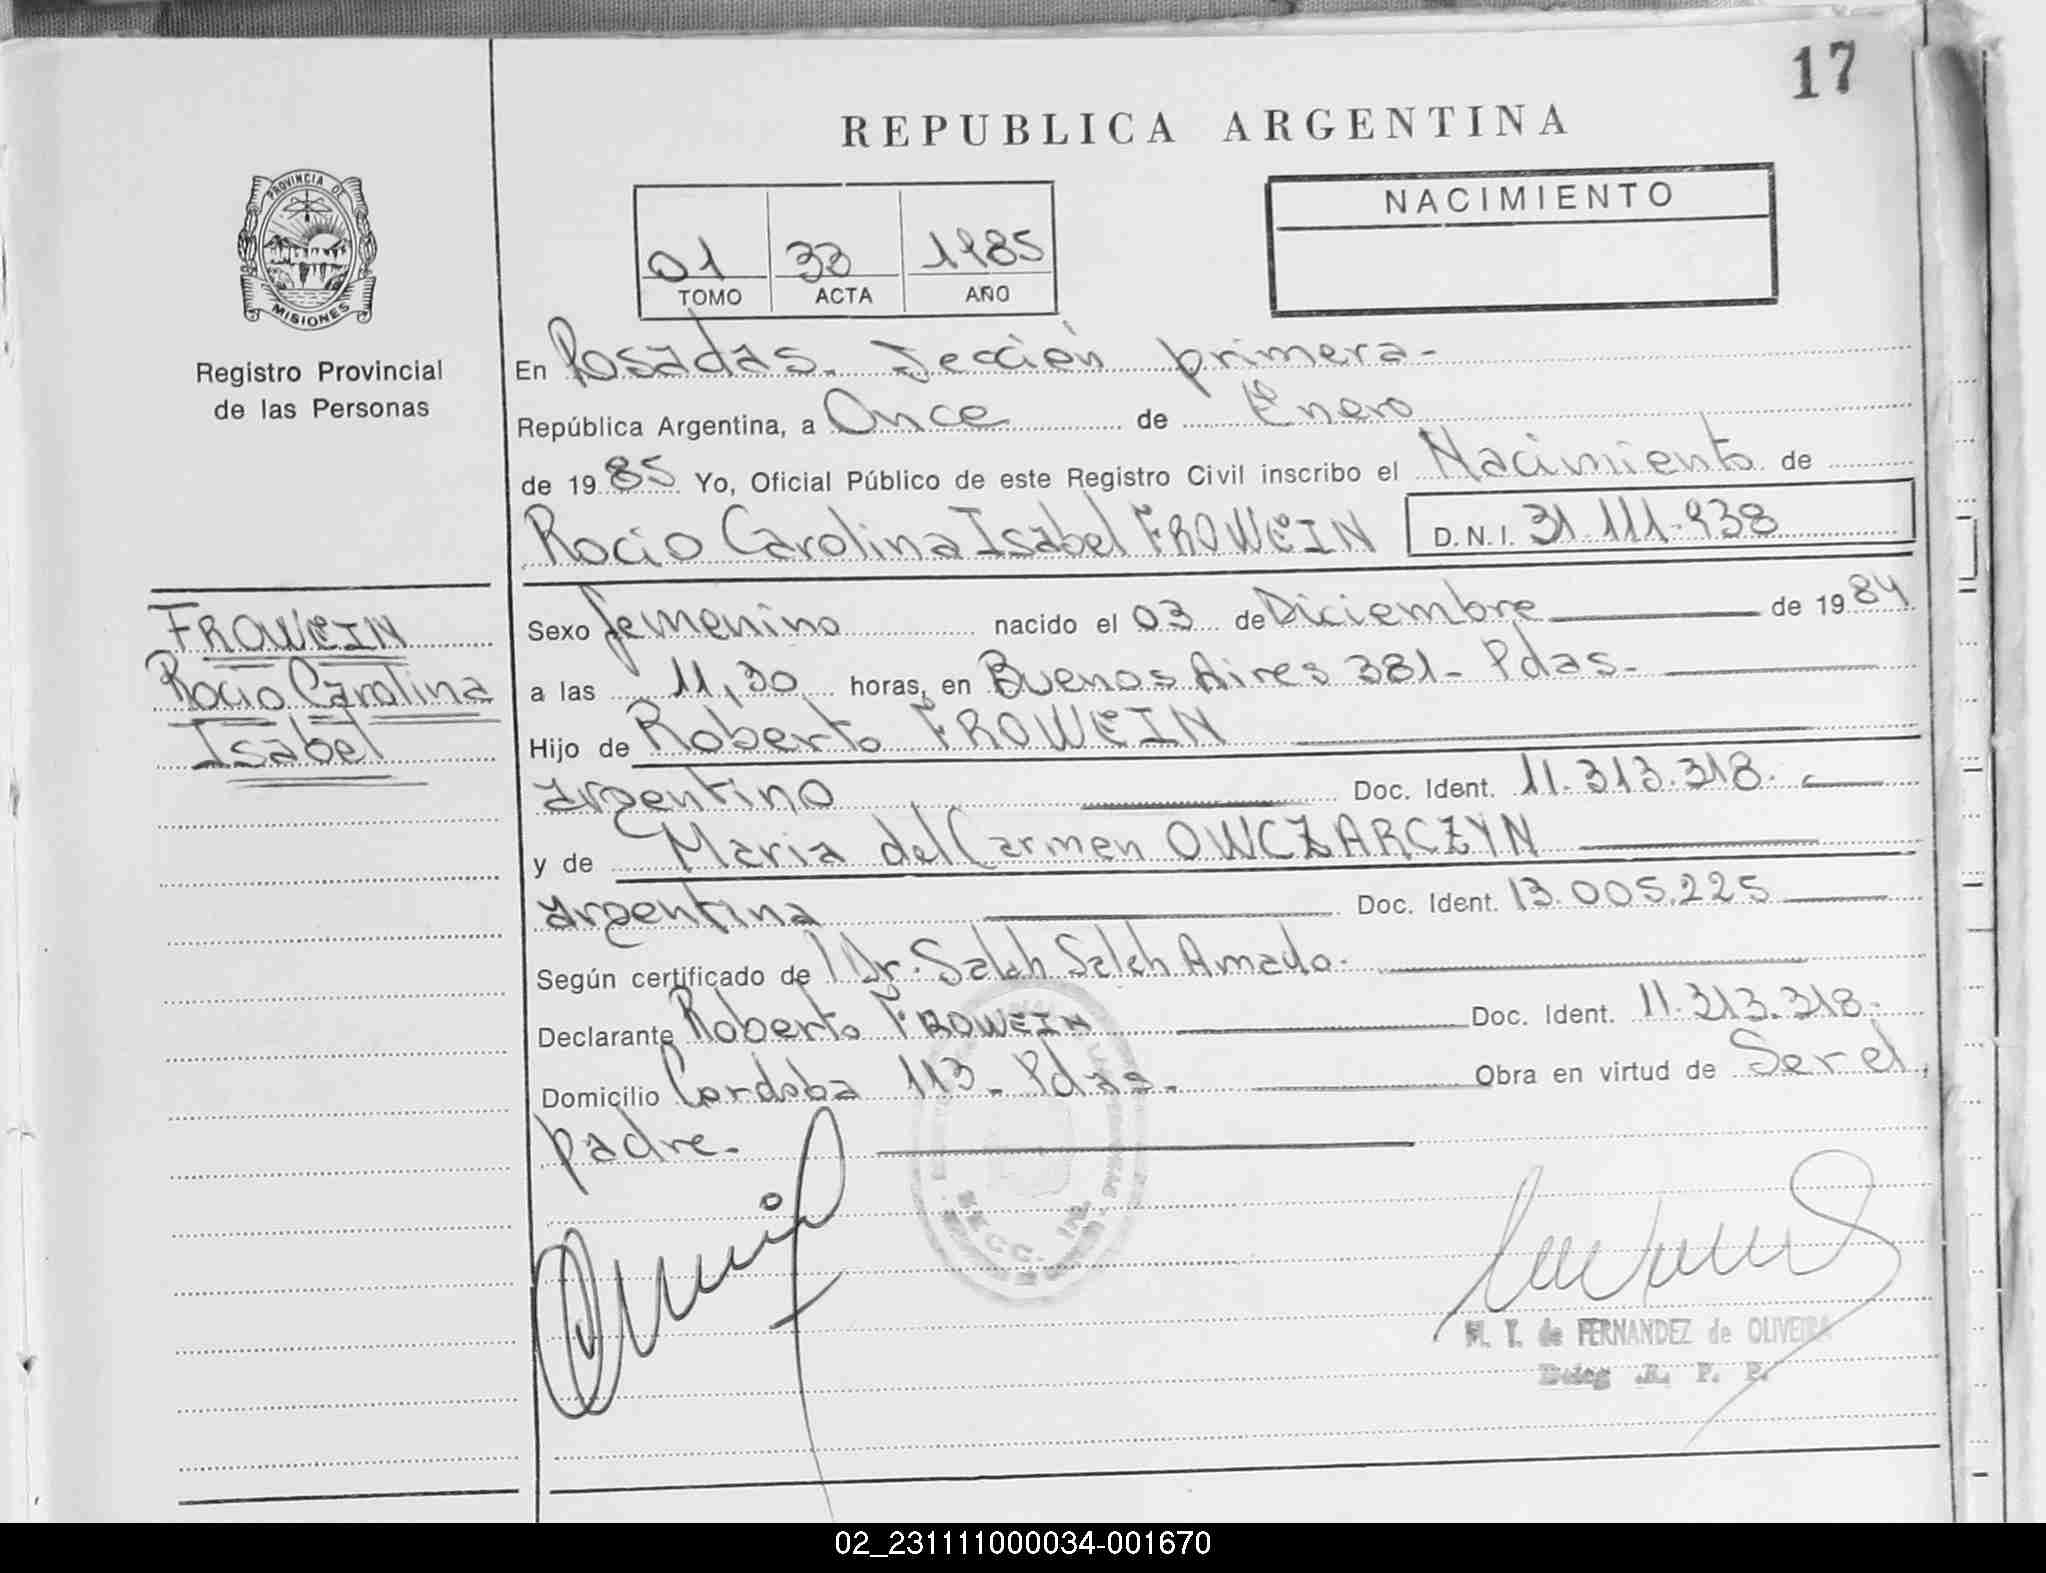 17
REPUBLICA ARGENTINA
PROVINCIA DE
MISIONES
Registro Provincial
de las Personas
01 33 1985
TOMO ACTA AÑO
NACIMIENTO
En Posadas. Sección primera-
República Argentina, a Once de Enero
de 1985 Yo, Oficial Público de este Registro Civil inscribo el Nacimiento de
Rocio Carolina Isabel FROWEIN D.N.I. 31.111.938
FROWEIN
Rocio Carolina
Isabel
Sexo femenino nacido el 03 de Diciembre de 1984
a las 11,30 horas, en Buenos Aires 381- Pdas-
Hijo de Roberto FROWEIN
argentino Doc. Ident. 11.313.318.
y de Maria del Carmen OWCZARCZYN
argentina Doc. Ident. 13.005.225
Según certificado de Dr. Saleh Saleh Amado.
Declarante Roberto FROWEIN Doc. Ident. 11.313.318.
Domicilio Cordoba 113- Pdas. Obra en virtud de Ser el
padre.
SECC. 1a.
M. Y. de FERNANDEZ de OLIVEIRA
Deleg R. P. P.
02_231111000034-001670